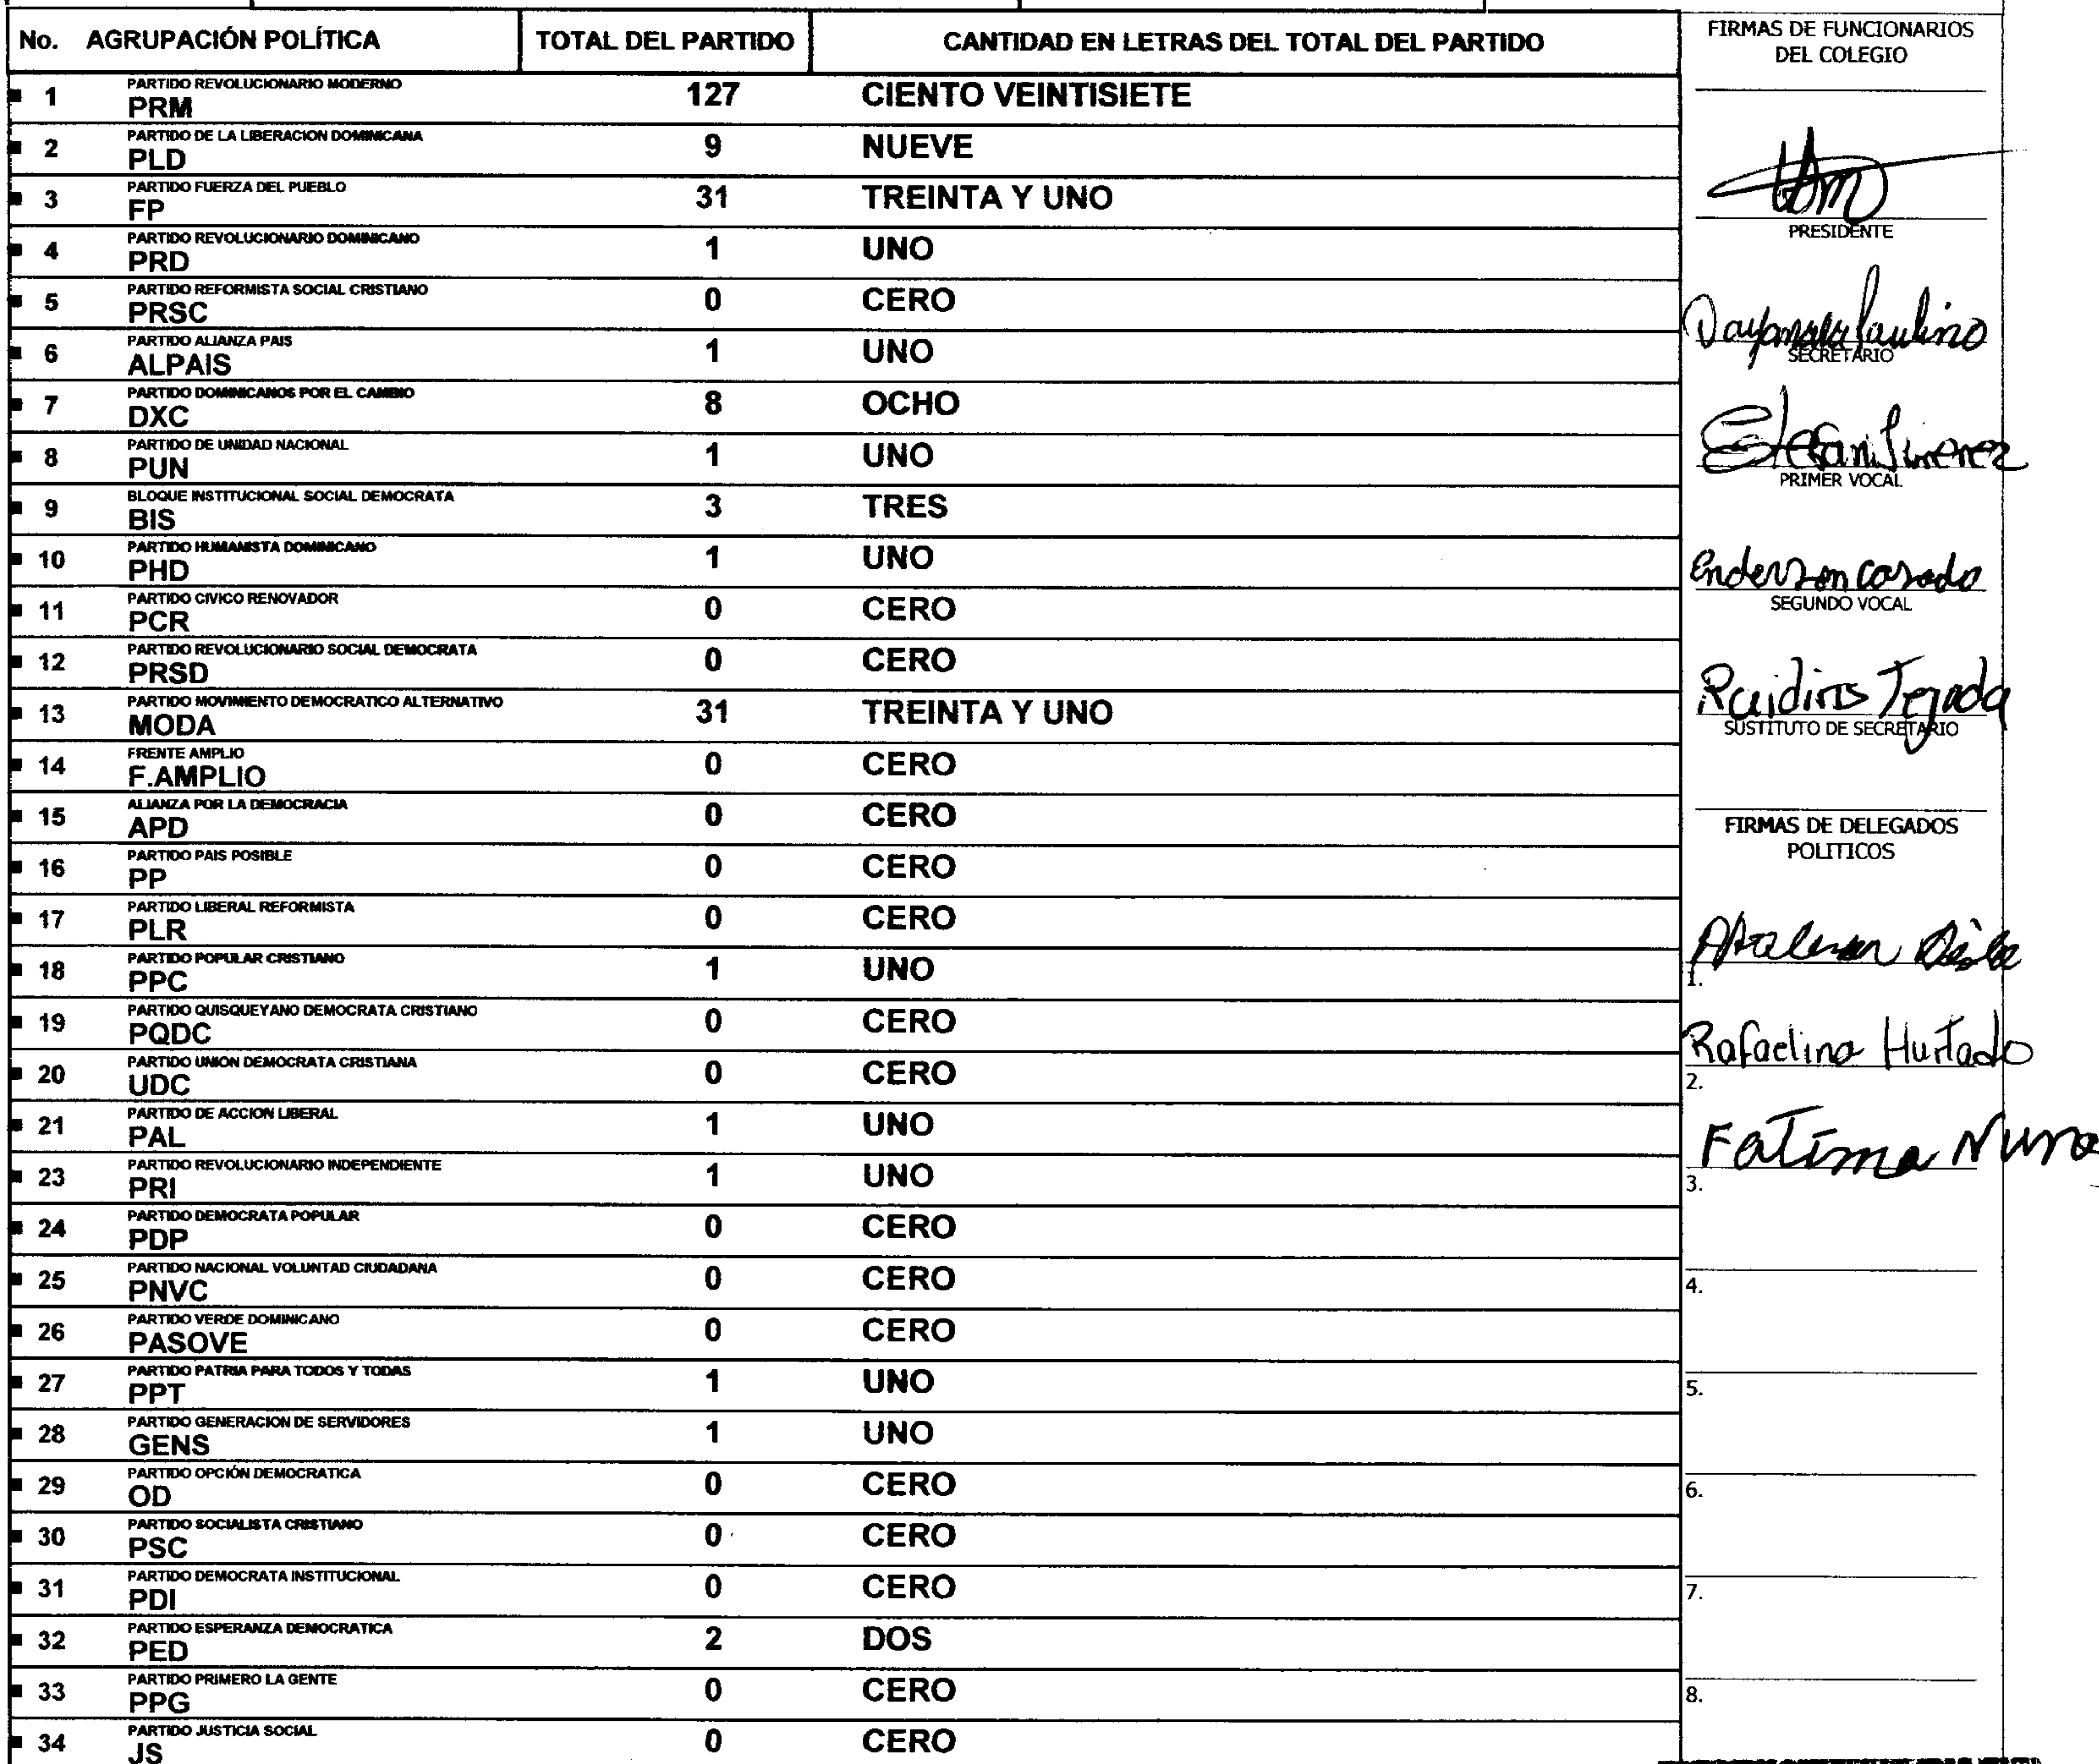 No. AGRUPACIÓN POLÍTICA TOTAL DEL PARTIDO CANTIDAD EN LETRAS DEL TOTAL DEL PARTIDO
PARTIDO REVOLUCIONARIO MODERNO
1 PRM 127 CIENTO VEINTISIETE
PARTIDO DE LA LIBERACION DOMINICANA
2 PLD 9 NUEVE
PARTIDO FUERZA DEL PUEBLO
3 FP 31 TREINTA Y UNO
PARTIDO REVOLUCIONARIO DOMINICANO
4 PRD 1 UNO
PARTIDO REFORMISTA SOCIAL CRISTIANO
5 PRSC 0 CERO
PARTIDO ALIANZA PAIS
6 ALPAIS 1 UNO
PARTIDO DOMINICANOS POR EL CAMBIO
7 DXC 8 OCHO
PARTIDO DE UNIDAD NACIONAL
8 PUN 1 UNO
BLOQUE INSTITUCIONAL SOCIAL DEMOCRATA
9 BIS 3 TRES
PARTIDO HUMANISTA DOMINICANO
10 PHD 1 UNO
PARTIDO CIVICO RENOVADOR
11 PCR 0 CERO
PARTIDO REVOLUCIONARIO SOCIAL DEMOCRATA
12 PRSD 0 CERO
PARTIDO MOVIMIENTO DEMOCRATICO ALTERNATIVO
13 MODA 31 TREINTA Y UNO
FRENTE AMPLIO
14 F.AMPLIO 0 CERO
ALIANZA POR LA DEMOCRACIA
15 APD 0 CERO
PARTIDO PAIS POSIBLE
16 PP 0 CERO
PARTIDO LIBERAL REFORMISTA
17 PLR 0 CERO
PARTIDO POPULAR CRISTIANO
18 PPC 1 UNO
PARTIDO QUISQUEYANO DEMOCRATA CRISTIANO
19 PQDC 0 CERO
PARTIDO UNION DEMOCRATA CRISTIANA
20 UDC 0 CERO
PARTIDO DE ACCION LIBERAL
21 PAL 1 UNO
PARTIDO REVOLUCIONARIO INDEPENDIENTE
23 PRI 1 UNO
PARTIDO DEMOCRATA POPULAR
24 PDP 0 CERO
PARTIDO NACIONAL VOLUNTAD CIUDADANA
25 PNVC 0 CERO
PARTIDO VERDE DOMINICANO
26 PASOVE 0 CERO
PARTIDO PATRIA PARA TODOS Y TODAS
27 PPT 1 UNO
PARTIDO GENERACION DE SERVIDORES
28 GENS 1 UNO
PARTIDO OPCIÓN DEMOCRATICA
29 OD 0 CERO
PARTIDO SOCIALISTA CRISTIANO
30 PSC 0 CERO
PARTIDO DEMOCRATA INSTITUCIONAL
31 PDI 0 CERO
PARTIDO ESPERANZA DEMOCRATICA
32 PED 2 DOS
PARTIDO PRIMERO LA GENTE
33 PPG 0 CERO
PARTIDO JUSTICIA SOCIAL
34 JS 0 CERO
FIRMAS DE FUNCIONARIOS
DEL COLEGIO
PRESIDENTE
Paulino
SECRETARIO
PRIMER VOCAL
Enderson casado
SEGUNDO VOCAL
Tejada
SUSTITUTO DE SECRETARIO
FIRMAS DE DELEGADOS
POLITICOS
1.
Rafaelina Hurtado
2.
Fatima
3.
4.
5.
6.
7.
8.